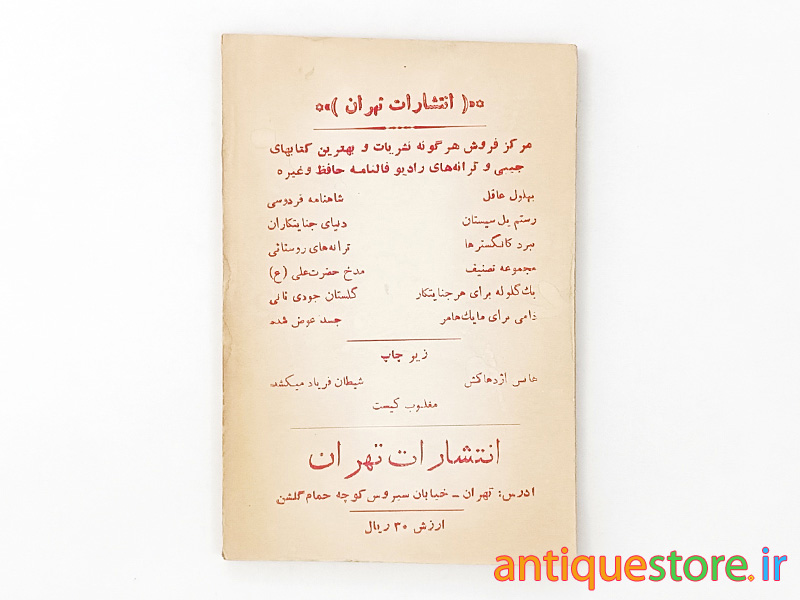 «( انتشارات تهران )»
مرکز فروش هر گونه نشریات و بهترین کتابهای
جیبی و ترانه‌های رادیو فالنامه حافظ و غیره
بهلول عاقل شاهنامه فردوسی
رستم یل سیستان دنیای جنایتکاران
نبرد گانگسترها ترانه‌های روستائی
مجموعه تصنیف مدح حضرت علی (ع)
یک گلوله برای هر جنایتکار گلستان جودی فانی
دامی برای مایک هامر جسد عوض شده
زیر چاپ
اژدهاکش شیطان فریاد میکشد
مغلوب کیست
انتشارات تهران
ادرس: تهران - خیابان سیروس کوچه حمام گلشن
ارزش ۳۰ ریال
antiquestore.ir